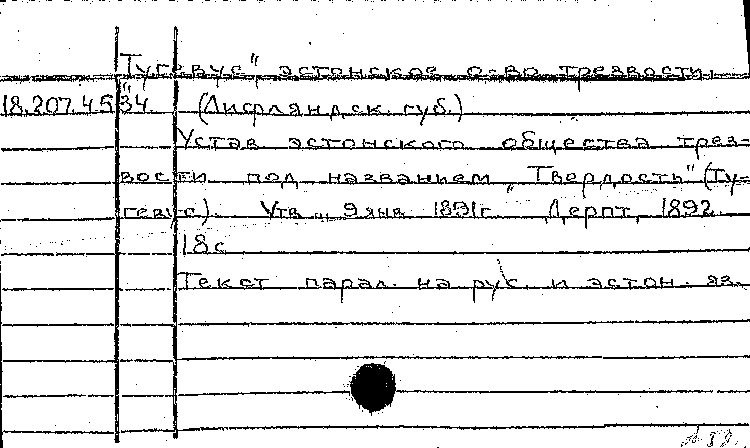 „Тугевус" эстонское о-во трезвости.
18.207.4.534. (Лифляндск. губ.)
Устав эстонского общества трез-
вости под названием „Твердость" (Ту-
гевус). Утв. 9 янв. 1891г. Дерпт, 1892.
18с.
Текст парал. на рус. и эстон. яз.